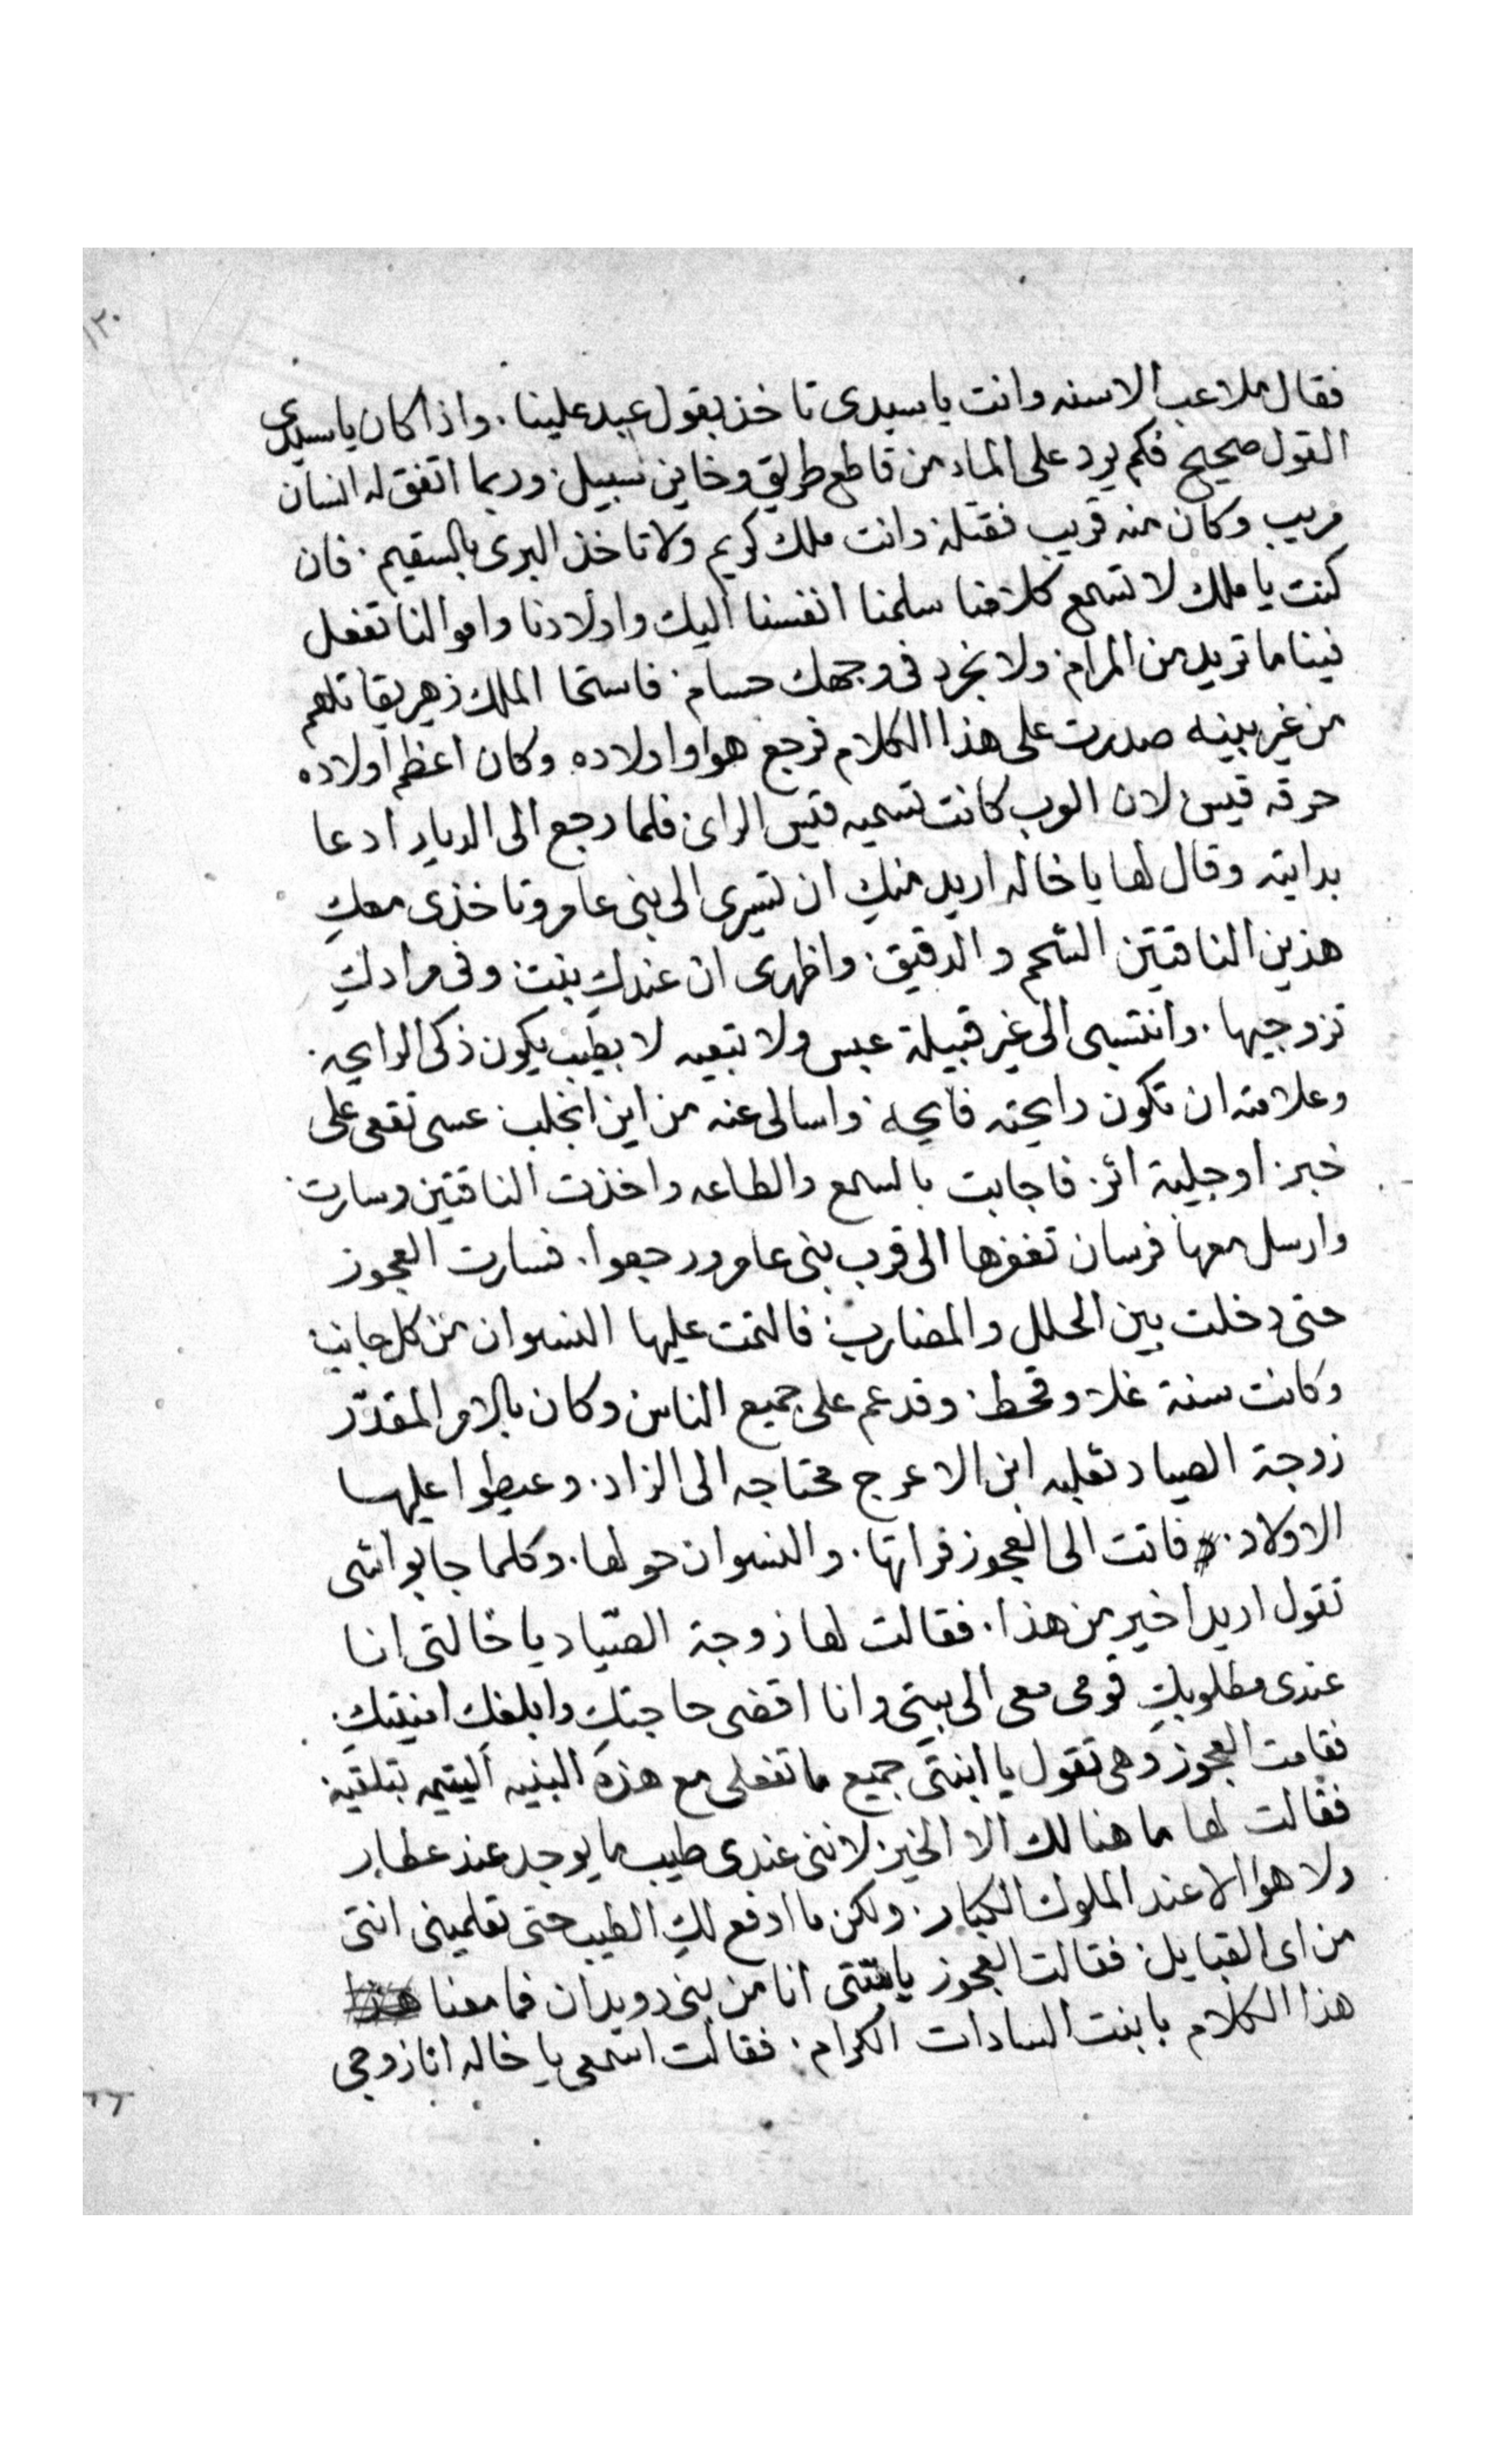 ١٢٠
فقال ملاعب الاسنه وانت يا سيدى تاخذ بقول عبد علينا. واذا كان يا سيدى
القول صحيح فكم يرد على الماء من قاطع طريق وخاين سبيل. وربما اتفق له انسان
مريب وكان منه قريب فقتله. وانت ملك كريم ولا تاخذ البرى بالسقيم. فان
كنت يا ملك لا تسمع كلامنا سلمنا انفسنا اليك واولادنا واموالنا تفعل
فينا ما تريد من المرام. ولا نجرد فى وجهك حسام. فاستحا الملك زهير يقاتلهم
من غير بينه صدرت على هذا الكلام فرجع هوا واولاده وكان اعظم اولاده
حرقه قيس لان العرب كانت تسميه قيس الراى. فلما رجع الى الديار ادعا
بدايته وقال لها يا خاله اريد منكِ ان تسيرى الى بنى عامر وتاخذى معكِ
هذين الناقتين الشحم والدقيق. واظهرى ان عندكِ بنت. وفى مرادكِ
تزوجيها. وانتسبى الى غير قبيلة عبس ولا تبعيه الا بطيب يكون ذكى الرايحه.
وعلامته ان تكون رايحته فايحه. واسالى عنه من اين انجلب. عسى تقعى على
خبر. او جلية اثر. فاجابت بالسمع والطاعه واخذت الناقتين وسارت.
وارسل معها فرسان تغفرها الى قرب بنى عامر ورجعوا. فسارت العجوز
حتى دخلت بين الحلل والمضارب. فالتمت عليها النسوان من كل جانب
وكانت سنة غلا وقحط. وقد عم على جميع الناس وكان بالامر المقدّر
زوجة الصياد ثعلبه ابن الاعرج محتاجه الى الزاد. وعيطوا عليها
الاولاد. فاتت الى العجوز فراتها. والنسوان حولها. وكلما جابوا شى
تقول اريد اخير من هذا. فقالت لها زوجة الصيّاد يا خالتى انا
عندى مطلوبكِ قومى معى الى بيتى وانا اقضى حاجتكِ وابلغكِ امنيتكِ.
فقامت العجوز وهى تقول يا ابنتى جميع ما تفعلى مع هذه البنيه اليتيمه تبلقيه
فقالت لها ما هنالك الا الخير. لاننى عندى طيب ما يوجد عند عطار
ولا هوا الا عند الملوك الكبار. ولكن ما ادفع لكِ الطيب حتى تعلمينى انتى
من اى القبايل. فقالت العجوز يا ستى انا من بنى دويدان فما معنا
هذا الكلام يا بنت السادات الكرام. فقالت اسمعى يا خاله انا زوجى